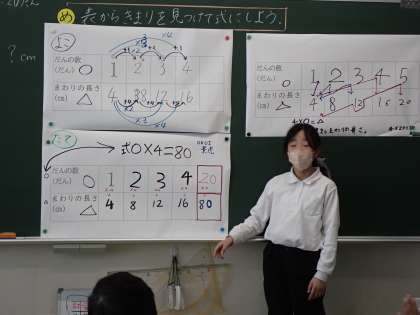 め 表からきまりを見つけて式にしよう。
? cm
よこ
×4
だんの数
(だん) ○ 1 2 3 4
まわりの長さ
(cm) △ 4 8 12 16
×3
×4
たて
式○×4=80
だんの数
(だん) ○ 1 2 3 4 20
まわりの長さ
(cm) △ 4 8 12 16 80
だんの数
(だん) ○ 1 2 3 4 5
まわりの長さ
(cm) △ 4 8 12 16 20
4×○=△